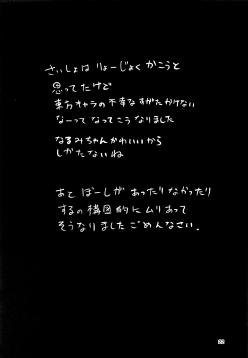 さいしょは りょーじょく かこうと
思ってたけど
東方キャラの不幸なすがたかけない
なーって なってこうなりました
なるみちゃんかわいいから
しかたないね
あと ぼーしが あったりなかったり
するの構図的にムリあって
そうなりました ごめんなさい.
22